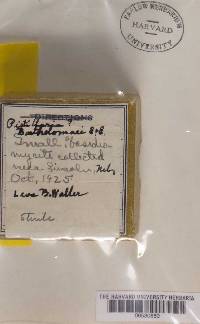 FARLOW HERBARIUM
HARVARD
UNIVERSITY
DIRECTIONS
Pistillaria
Bartholomaei E+E
Small basidio
mycete collected
near Lincoln, Neb,
Oct, 1925
Leva B. Walker
THE HARVARD UNIVERSITY HERBARIA